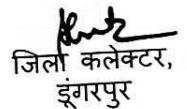 जिला कलेक्टर,
डूंगरपुर